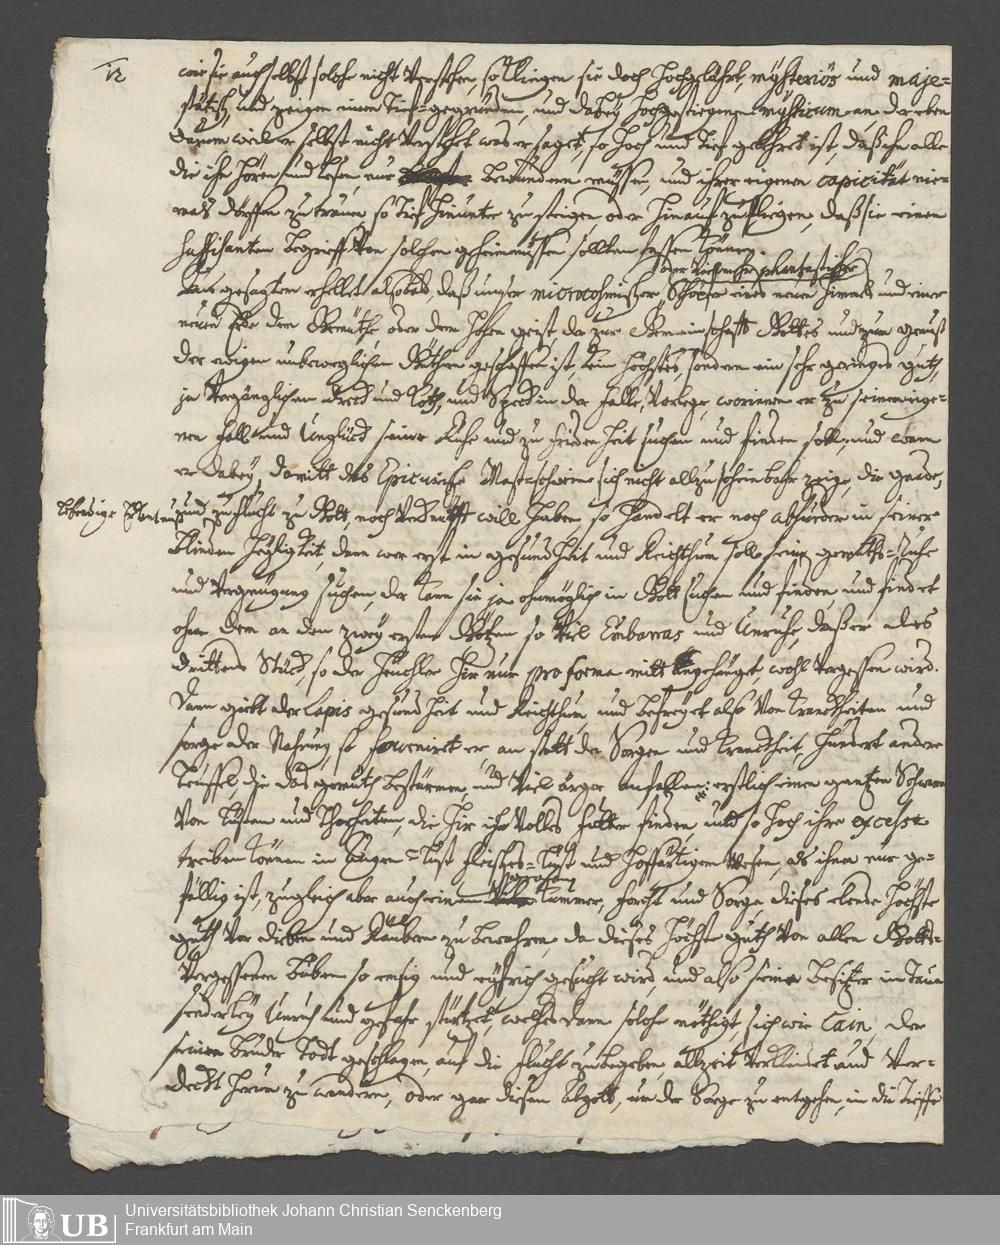 12
wie sie auch selbst solche nicht verstehen, so klingen sie doch hochgelahrt, mysteriös und maje-
stätisch, und zeigen einen tieff-gegründeten, und dabey hochgestiegenen mysticum an, der eben
darum weil er selbst nicht verstehet was er saget, so hoch und tief gelehret ist, daß ihn alle
die ihn hören und lesen, nur bewundern müssen, und ihrer eigenen capicität nie-
mals dörffen zutrauen, so tief hinunter zu steigen oder hinauf zu fliegen, daß sie einen
suffisanten begrieff von solchen geheimnüssen sollten fassen können.
oder vielmehr phantastischer
Aus gesagtem erhellet alsobald, daß unser microcosmischer Schöpfer eines neuen himmels und einer
neuen Erde dem Gemüthe oder dem hohen geist, der zur Gemeinschafft Gottes und zum genuß
der ewigen unbeweglichen Güther geschaffen ist, kein höchstes, sondern ein sehr geringes guth,
ja vergänglichen dreck und koth, und Speck in der falle, vorlege, worinnen er zu seinem eige-
nen fall und Unglück seine Ruhe und zufriedenheit suchen und finden soll, und wann
er dabey, damitt das Epicurische Mastschwein sich nicht allzu scheinbahr zeige, die gnade,
lebendige Erkentnuß
und zuflucht zu Gott, noch verknüpfft will haben, so handelt er noch absurder in seiner
blinden heyligkeit, dann wer erst in gesundheit und Reichthum soll seine gemüths-Ruhe
und vergnügung suchen, der kann sie ja ohnmöglich in Gott suchen und finden, und findet
ohne dem an den zwey ersten Götzen so viel Embarras und Unruhe, daß er des
dritten Stücks, so der heuchler hier nur pro forma mitt angehänget, wohl vergessen wird.
Dann giebt der Lapis gesundheit und Reichthum, und befreyet also von kranckheiten und
sorge der Nahrung, so fourniret er, an statt der Sorgen und kranckheit, hundert andere
Teuffel die das gemüth bestürmen und viel ärger anfallen: erstlich einen gantzen Schwarm
von lüsten und Thorheiten, die hier ihr volles futter finden, und so hoch ihre excesse
treiben können in Augen-lust fleisches-lust und hoffärtigem Wesen, als ihnen nur ge-
fällig ist, zugleich aber auch einen grosen kummer, forcht und Sorge, dieses elende höchste
guth vor dieben und Räubern zu bewahren, da dieses höchste guth von allen Gotts-
vergessenen buben so emsig und eyfrich gesucht wird, und also seine besitzer in tau-
senderley Unruh und gefahr stürtzet, welches dann solche nöthigt, sich wie Cain, der
seinen bruder Todt geschlagen, auf die flucht zubegeben, allzeit verkleidet und ver-
deckt herum zu wandern, oder gar diesen Abgott, um der Sorge zu entgehen, in die tieffe
UB
Universitätsbibliothek Johann Christian Senckenberg
Frankfurt am Main